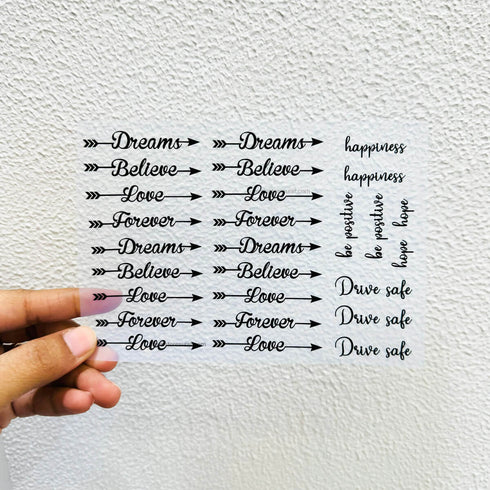 Dreams Dreams
Believe Believe
Love Love
Forever Forever
Dreams Dreams
Believe Believe
Love Love
Forever Forever
Love Love
happiness
happiness
be positive
be positive
hope
hope
Drive safe
Drive safe
Drive safe